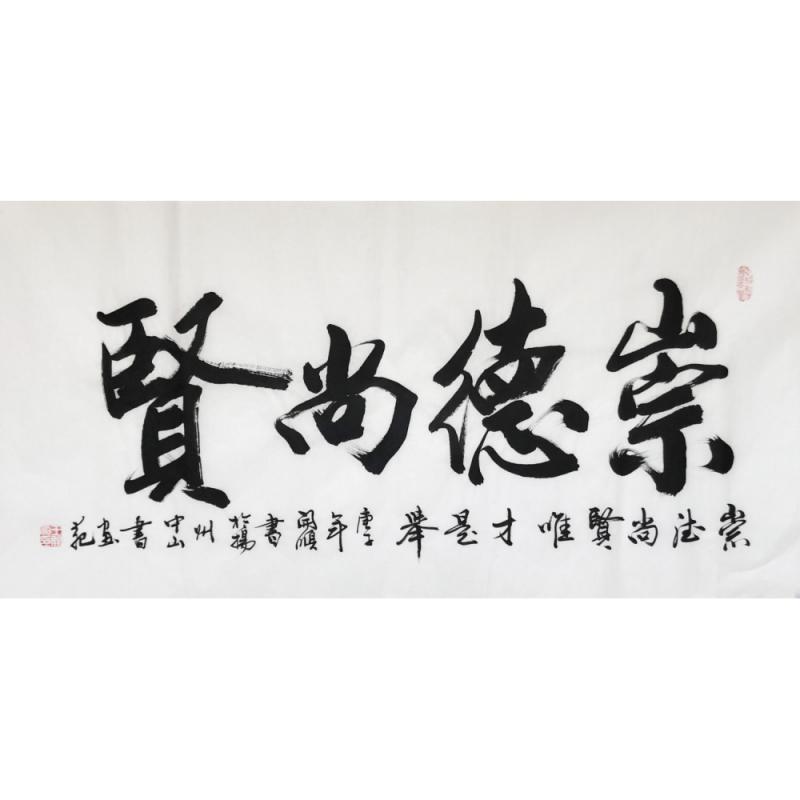 崇德尚賢
崇德尚賢唯才是舉庚子年開順書於揚州中山書畫苑